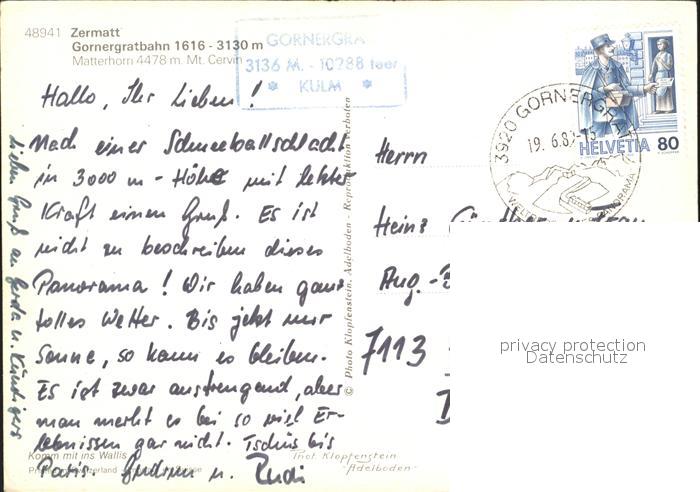 48941 Zermatt
Gornergratbahn 1616 - 3130 m
Matterhorn 4478 m. Mt. Cervin
GORNERGRA
3136 M. - 10288 feet
* KULM *
3920 GORNERGRAT
19. 6.8
HELVETIA 80
Hallo, Ihr Lieben!
Nach einer Schneeballschlacht
in 3000 m - Höhe mit letzter
Kraft einen Gruß. Es ist
nicht zu beschreiben dieses
Panorama! Wir haben ganz
tolles Wetter. Bis jetzt nur
Sonne, so kann es bleiben.
Es ist zwar anstrengend, aber
man merkt es bei so viel Er-
lebnissen gar nicht. Tschüs bis
Paris. Gudrun u. Rudi
Lieben Gruß an Gerda u.
© Photo Klopfenstein, Adelboden - Reproduktion verboten
Herrn
Heinz
Aug.-
7113
privacy protection
Datenschutz
Komm mit ins Wallis
Phot. Klopfenstein
-Adelboden-